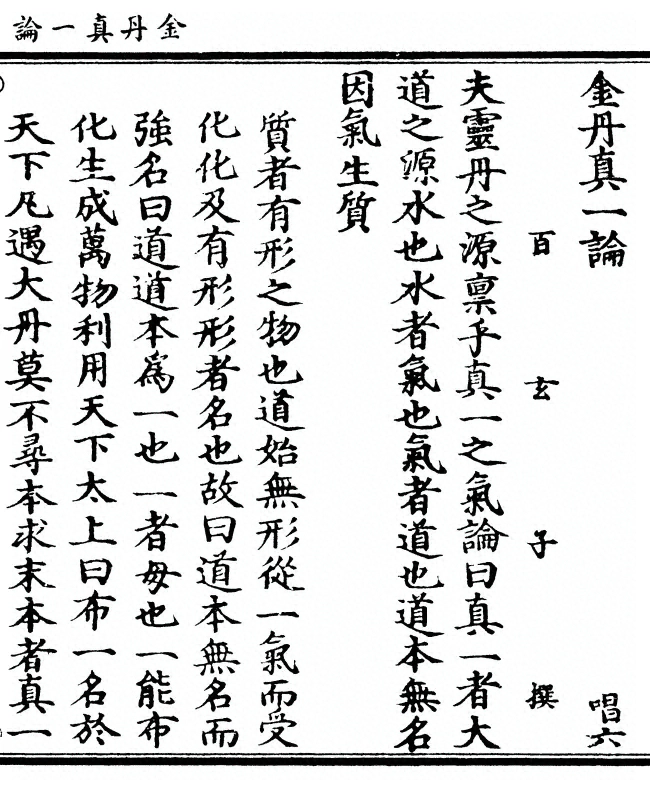 金丹真一論
金丹真一論
唱六
百玄子撰
夫靈丹之源禀乎真一之氣論曰真一者大
道之源水也水者氣也氣者道也道本無名
因氣生質
質者有形之物也道始無形從一氣而受
化化及有形形者名也故曰道本無名而
強名曰道道本爲一也一者毋也一能布
化生成萬物利用天下太上曰布一名於
天下凡遇大丹莫不尋本求末本者真一